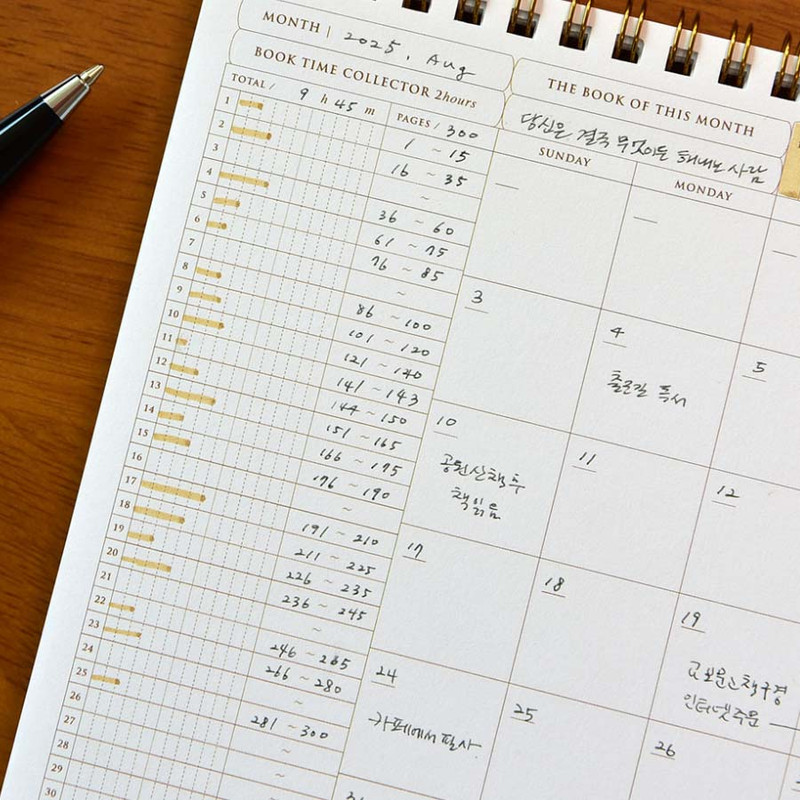 MONTH | 2025. Aug
BOOK TIME COLLECTOR 2hours
TOTAL / 9 h 45 m
PAGES / 300
1 1 ~ 15
2 16 ~ 35
3 ~
4 36 ~ 60
5 61 ~ 75
6 76 ~ 85
7 ~
8 86 ~ 100
9 101 ~ 120
10 121 ~ 140
11 141 ~ 143
12 144 ~ 150
13 151 ~ 165
14 166 ~ 175
15 176 ~ 190
16 ~
17 191 ~ 210
18 211 ~ 225
19 226 ~ 235
20 236 ~ 245
21 ~
22 246 ~ 265
23 266 ~ 280
24 ~
25 281 ~ 300
26 ~
27 ~
28
29
30
THE BOOK OF THIS MONTH
당신은 결국 무엇이든 해내는 사람
SUNDAY
MONDAY
3
4
출근길 독서
5
10
공원산책 후
책읽음
11
12
17
18
19
교보문고책구경
인터넷주문
24
카페에서 필사.
25
26